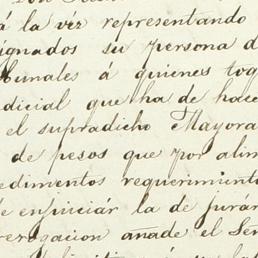 á la vez representando
ignados su persona d
ibunales á quienes tog
dicial que ha de hace
el supradicho Mayora
de pesos que por alim
edimentos requerimiento
de enjuiciár la de jurar
rerogacion añade el Señ